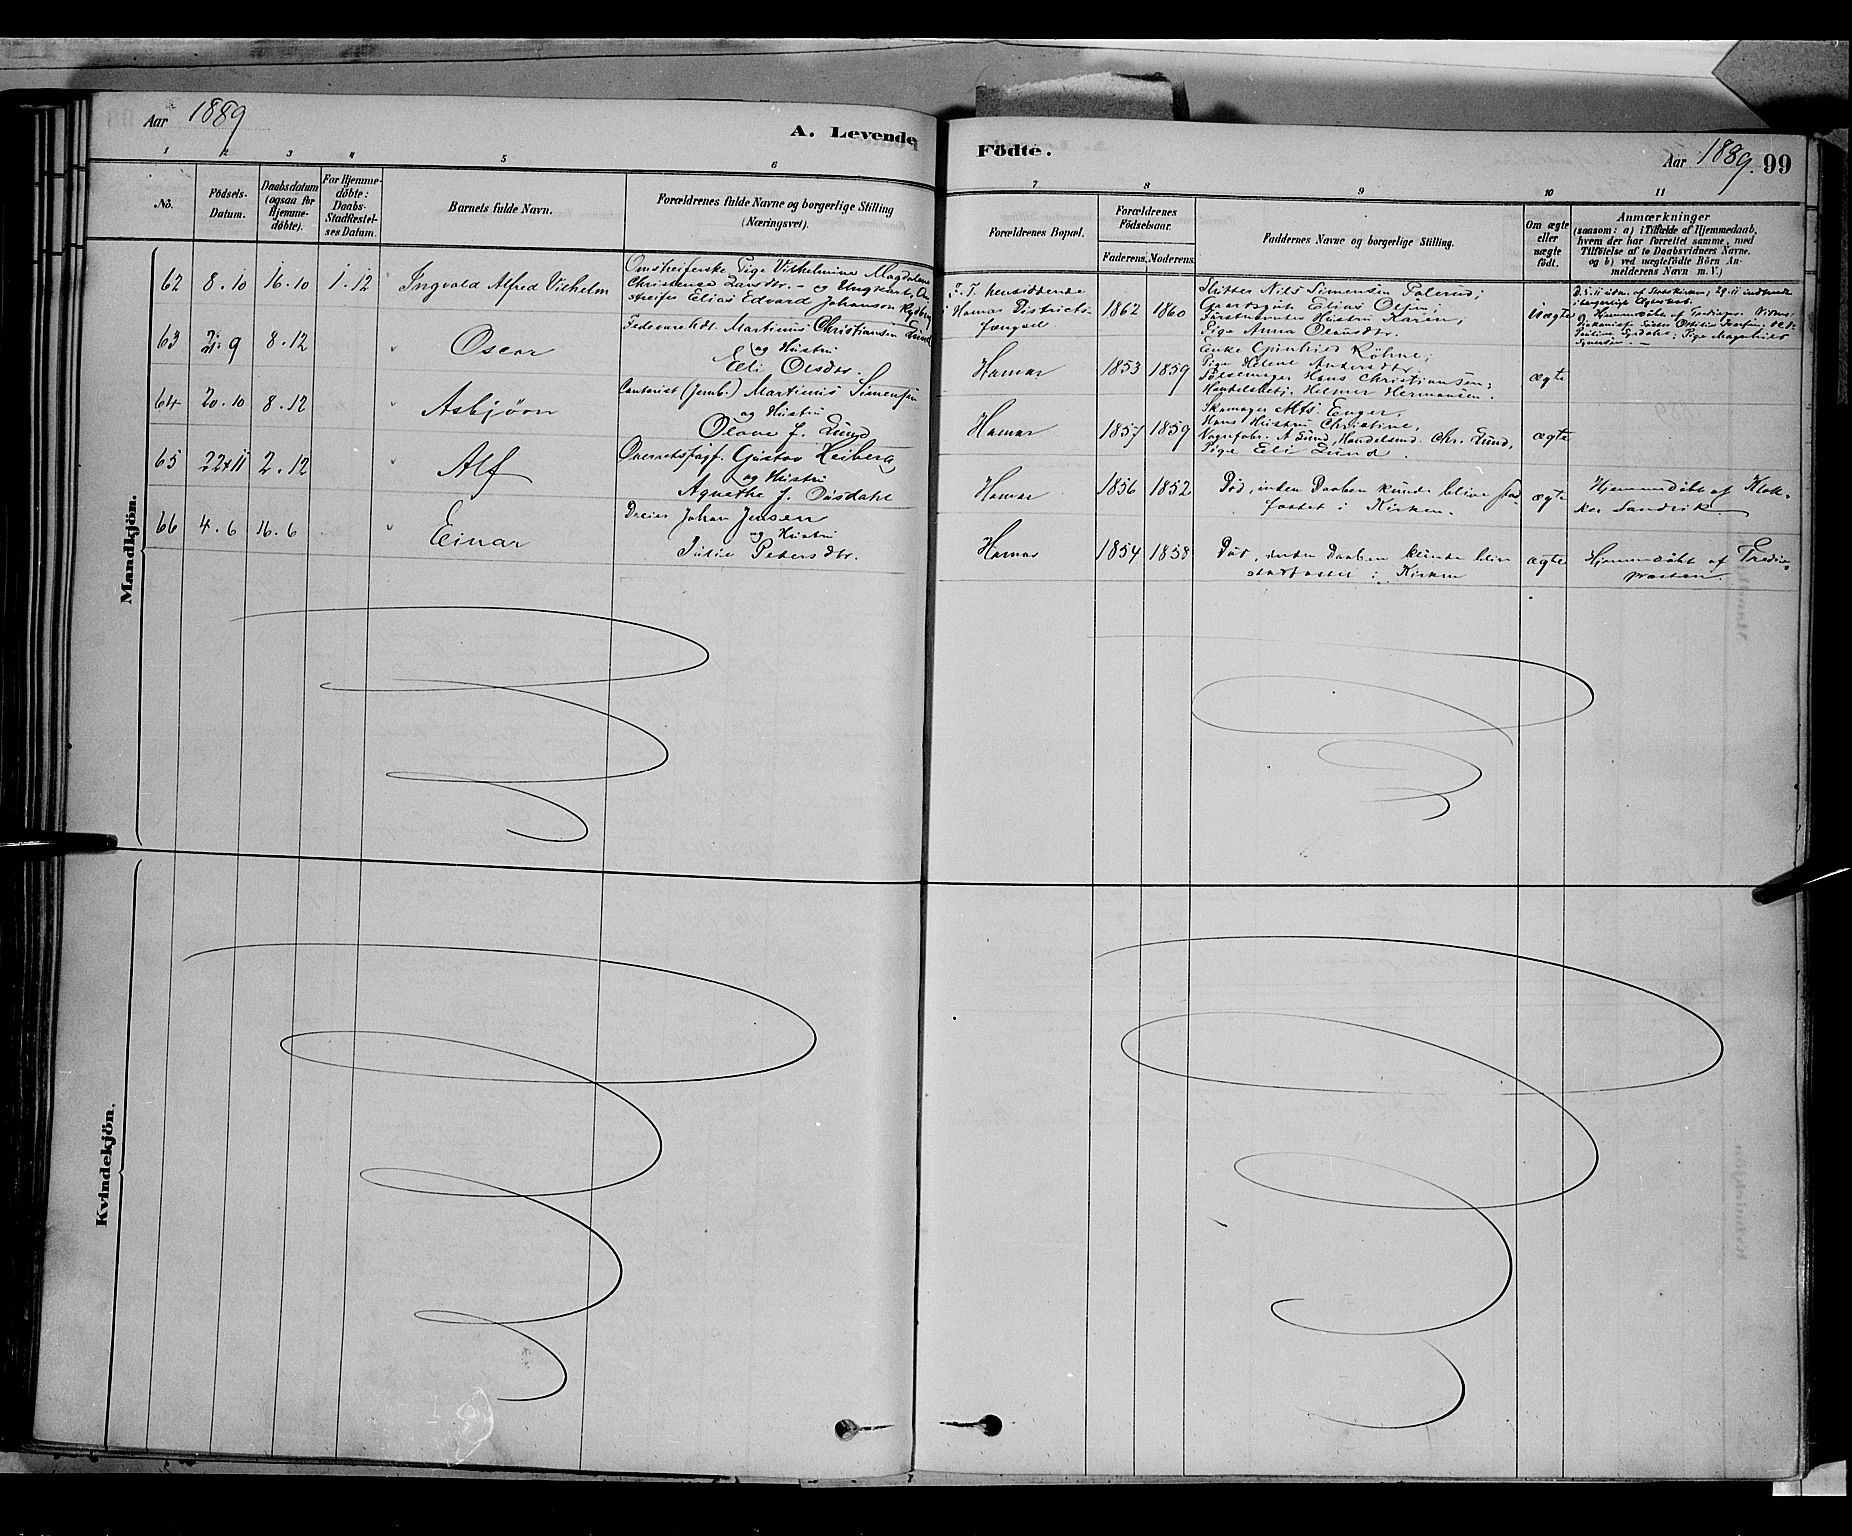 Aar 1889
A. Levende
Födte.
Aar 1889. 99
1 2 3 4 5 6 7 8 9 10 11
No.
Födsels-
Datum.
Daabsdatum
(ogsaa for
Hjemme-
döbte).
For Hjemme-
döbte:
Daabs-
Stadfæstel-
ses Datum.
Barnets fulde Navn.
Forældrenes fulde Navne og borgerlige Stilling
(Næringsvei).
Forældrenes Bopæl.
Forældrenes
Födselsaar.
Faderens. Moderens.
Faddernes Navne og borgerlige Stilling.
Om ægte
eller
uægte
födt.
Anmærkninger
(saasom: a) i Tilfælde af Hjemmedaab,
hvem der har forrettet samme, med
Tilföielse af to Daabsvidners Navne,
og b) ved uægtefödte Börn An-
melderens Navn m. V.)
Mandkjön.
62 8.10 16.10 1.12 Ingvald Alfred Vilhelm
Omstreiferske Pige Vilhelmine Magdalene
Christence Larsdtr. - og Ungkarl, Om-
streifer Elias Edvard Johanson
hensiddende
i Hamar Districts-
fængsel
1862 1860
Slutter Nils Simensen
Gaardsgut Elias Olsen,
Hustru Karen,
Pige Anna Olausdtr.
uægte
63 21.9 8.12 Oscar
Fedevarehdl. Martinus Christiansen Lund
og Hustru
Eli Olsdtr.
Hamar 1853 1859
Enke
Pige Helene Andersdtr.
Hans Christiansen,
Handelsbetj. Helmer Hermansen.
ægte
64 20.10 8.12 Asbjörn
Contorist (Jernb.) Martinus Simensen
og Hustru
Olave J. Lund
Hamar 1857 1859
Skomager Mts. Enger,
Hans Hustru Christine,
Vognfabr. A Lund, Handelsmd. Chr. Lund,
Pige Eli Lund.
ægte
65 22.11 2.12 Alf
Overretssagf. Gustav Heiberg
og Hustru
Agnethe J.
Hamar 1856 1852
Död, inden Daaben kunde blive stad-
fæstet i Kirken.
ægte
Hjemmedöbt af Klok-
ker Sandvik
66 4.6 16.6 Einar
Dreier Johan Jensen
og Hustru
Julie Petersdtr.
Hamar 1854 1858
Död, inden Daaben kunde blive
stadfæstet i Kirken
ægte
Hjemmedöbt af
præsten
Kvindekjön.